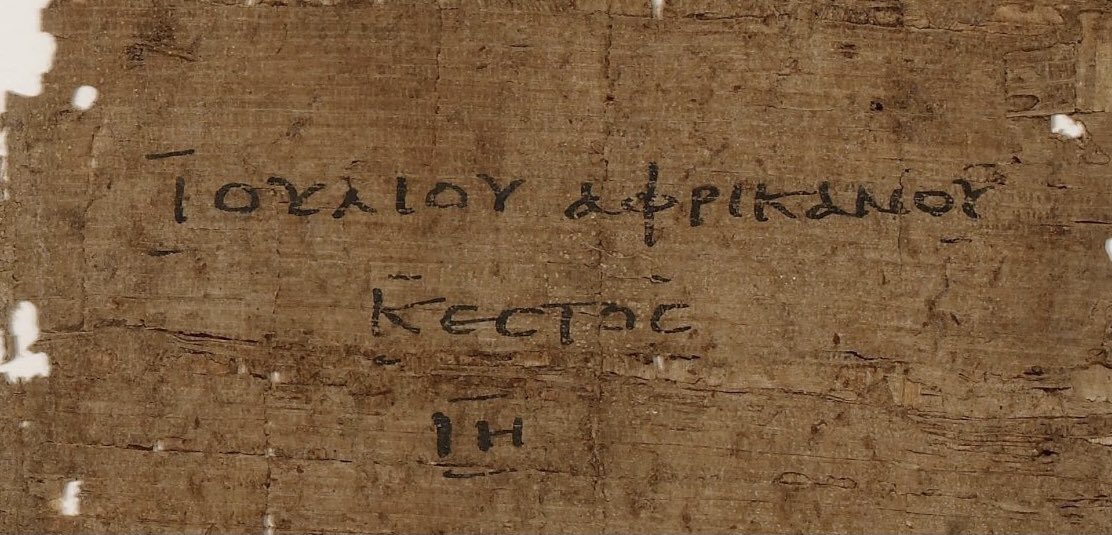 Ιουλιου αφρικανου
Κεστος
ιη